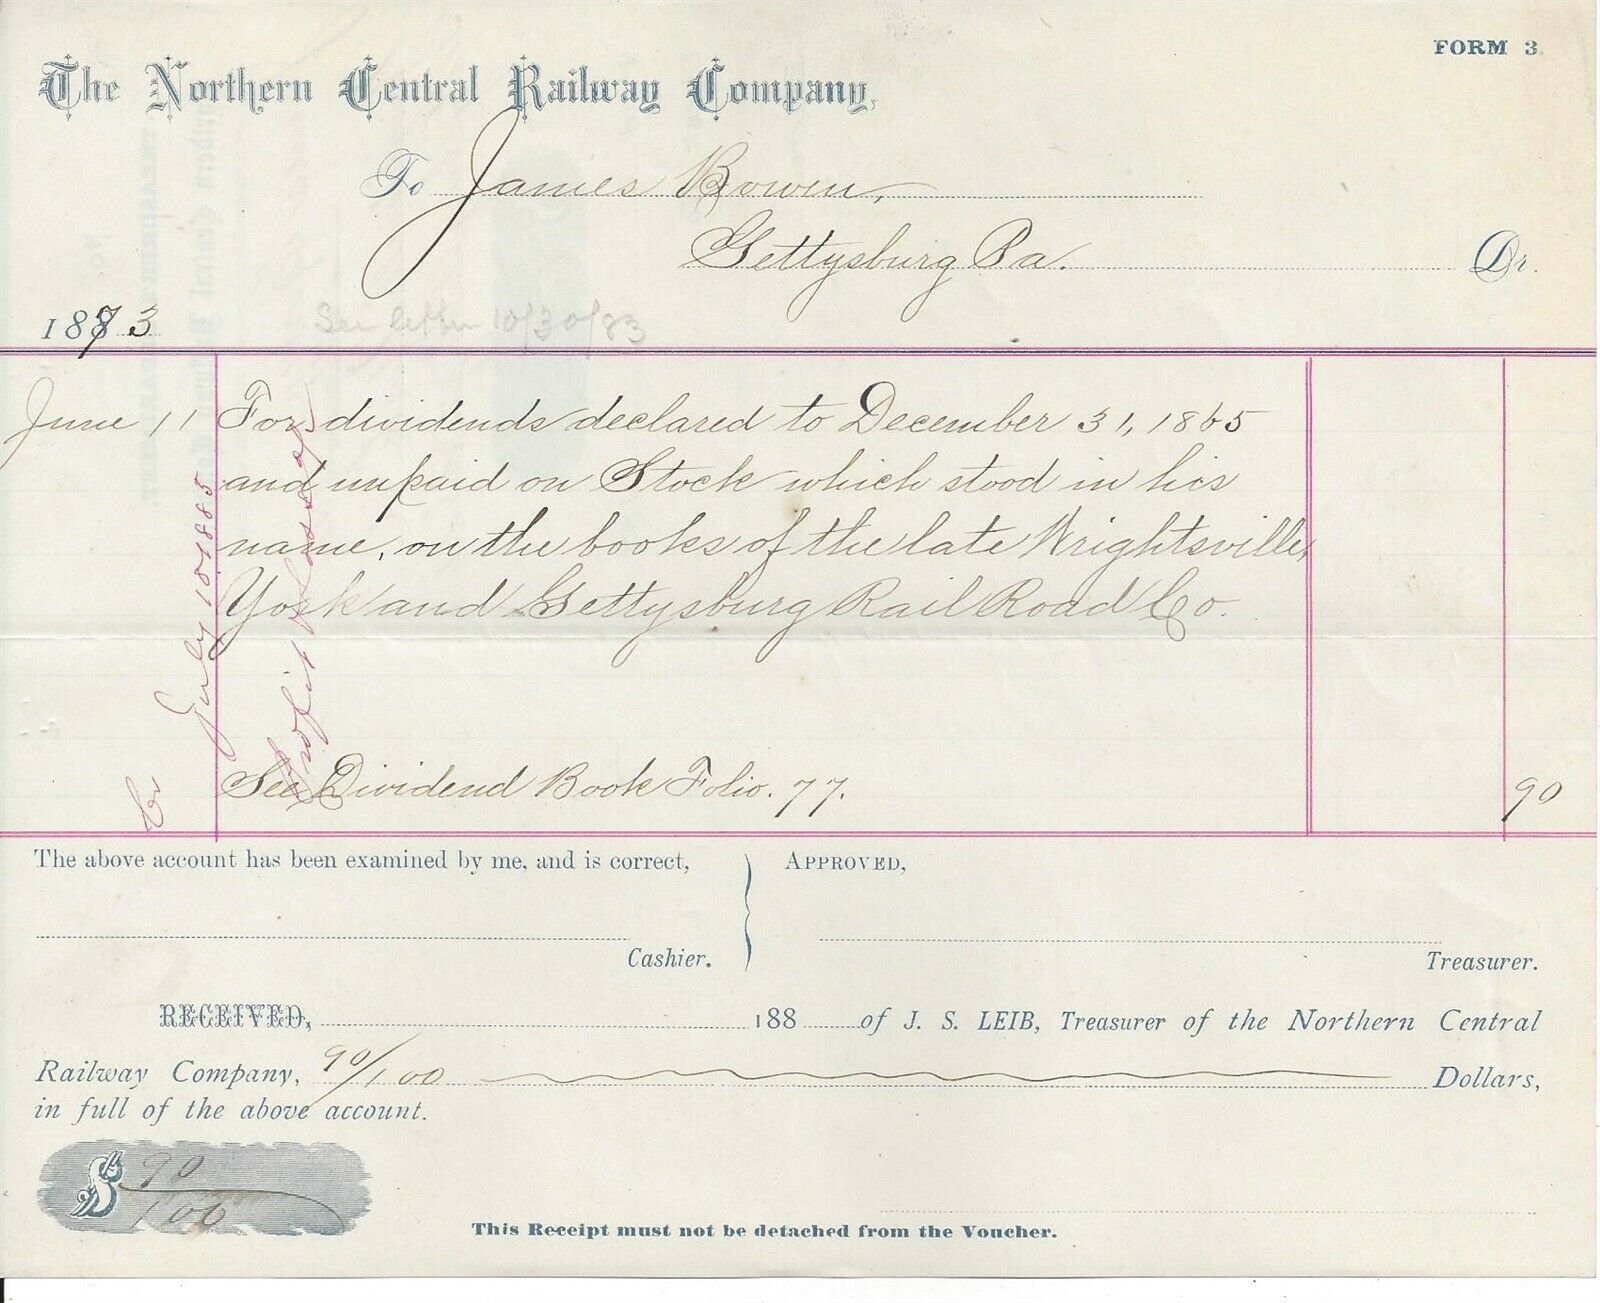 FORM 3.
The Northern Central Railway Company,
To James Bowen,
Gettysburg Pa. Dr.
1873
See letter 10/30/83
June 11 For dividends declared to December 31, 1865
and unpaid on Stock which stood in his
name, on the books of the late Wrightsville,
York and Gettysburg Rail Road Co.
See Dividend Book Folio. 77. 90
Cr Profit & Loss a/c
July 10 1885
The above account has been examined by me, and is correct,
APPROVED,
Cashier.
Treasurer.
RECEIVED, 188 of J. S. LEIB, Treasurer of the Northern Central
Railway Company, 90/100 Dollars,
in full of the above account.
$ 90/100
This Receipt must not be detached from the Voucher.